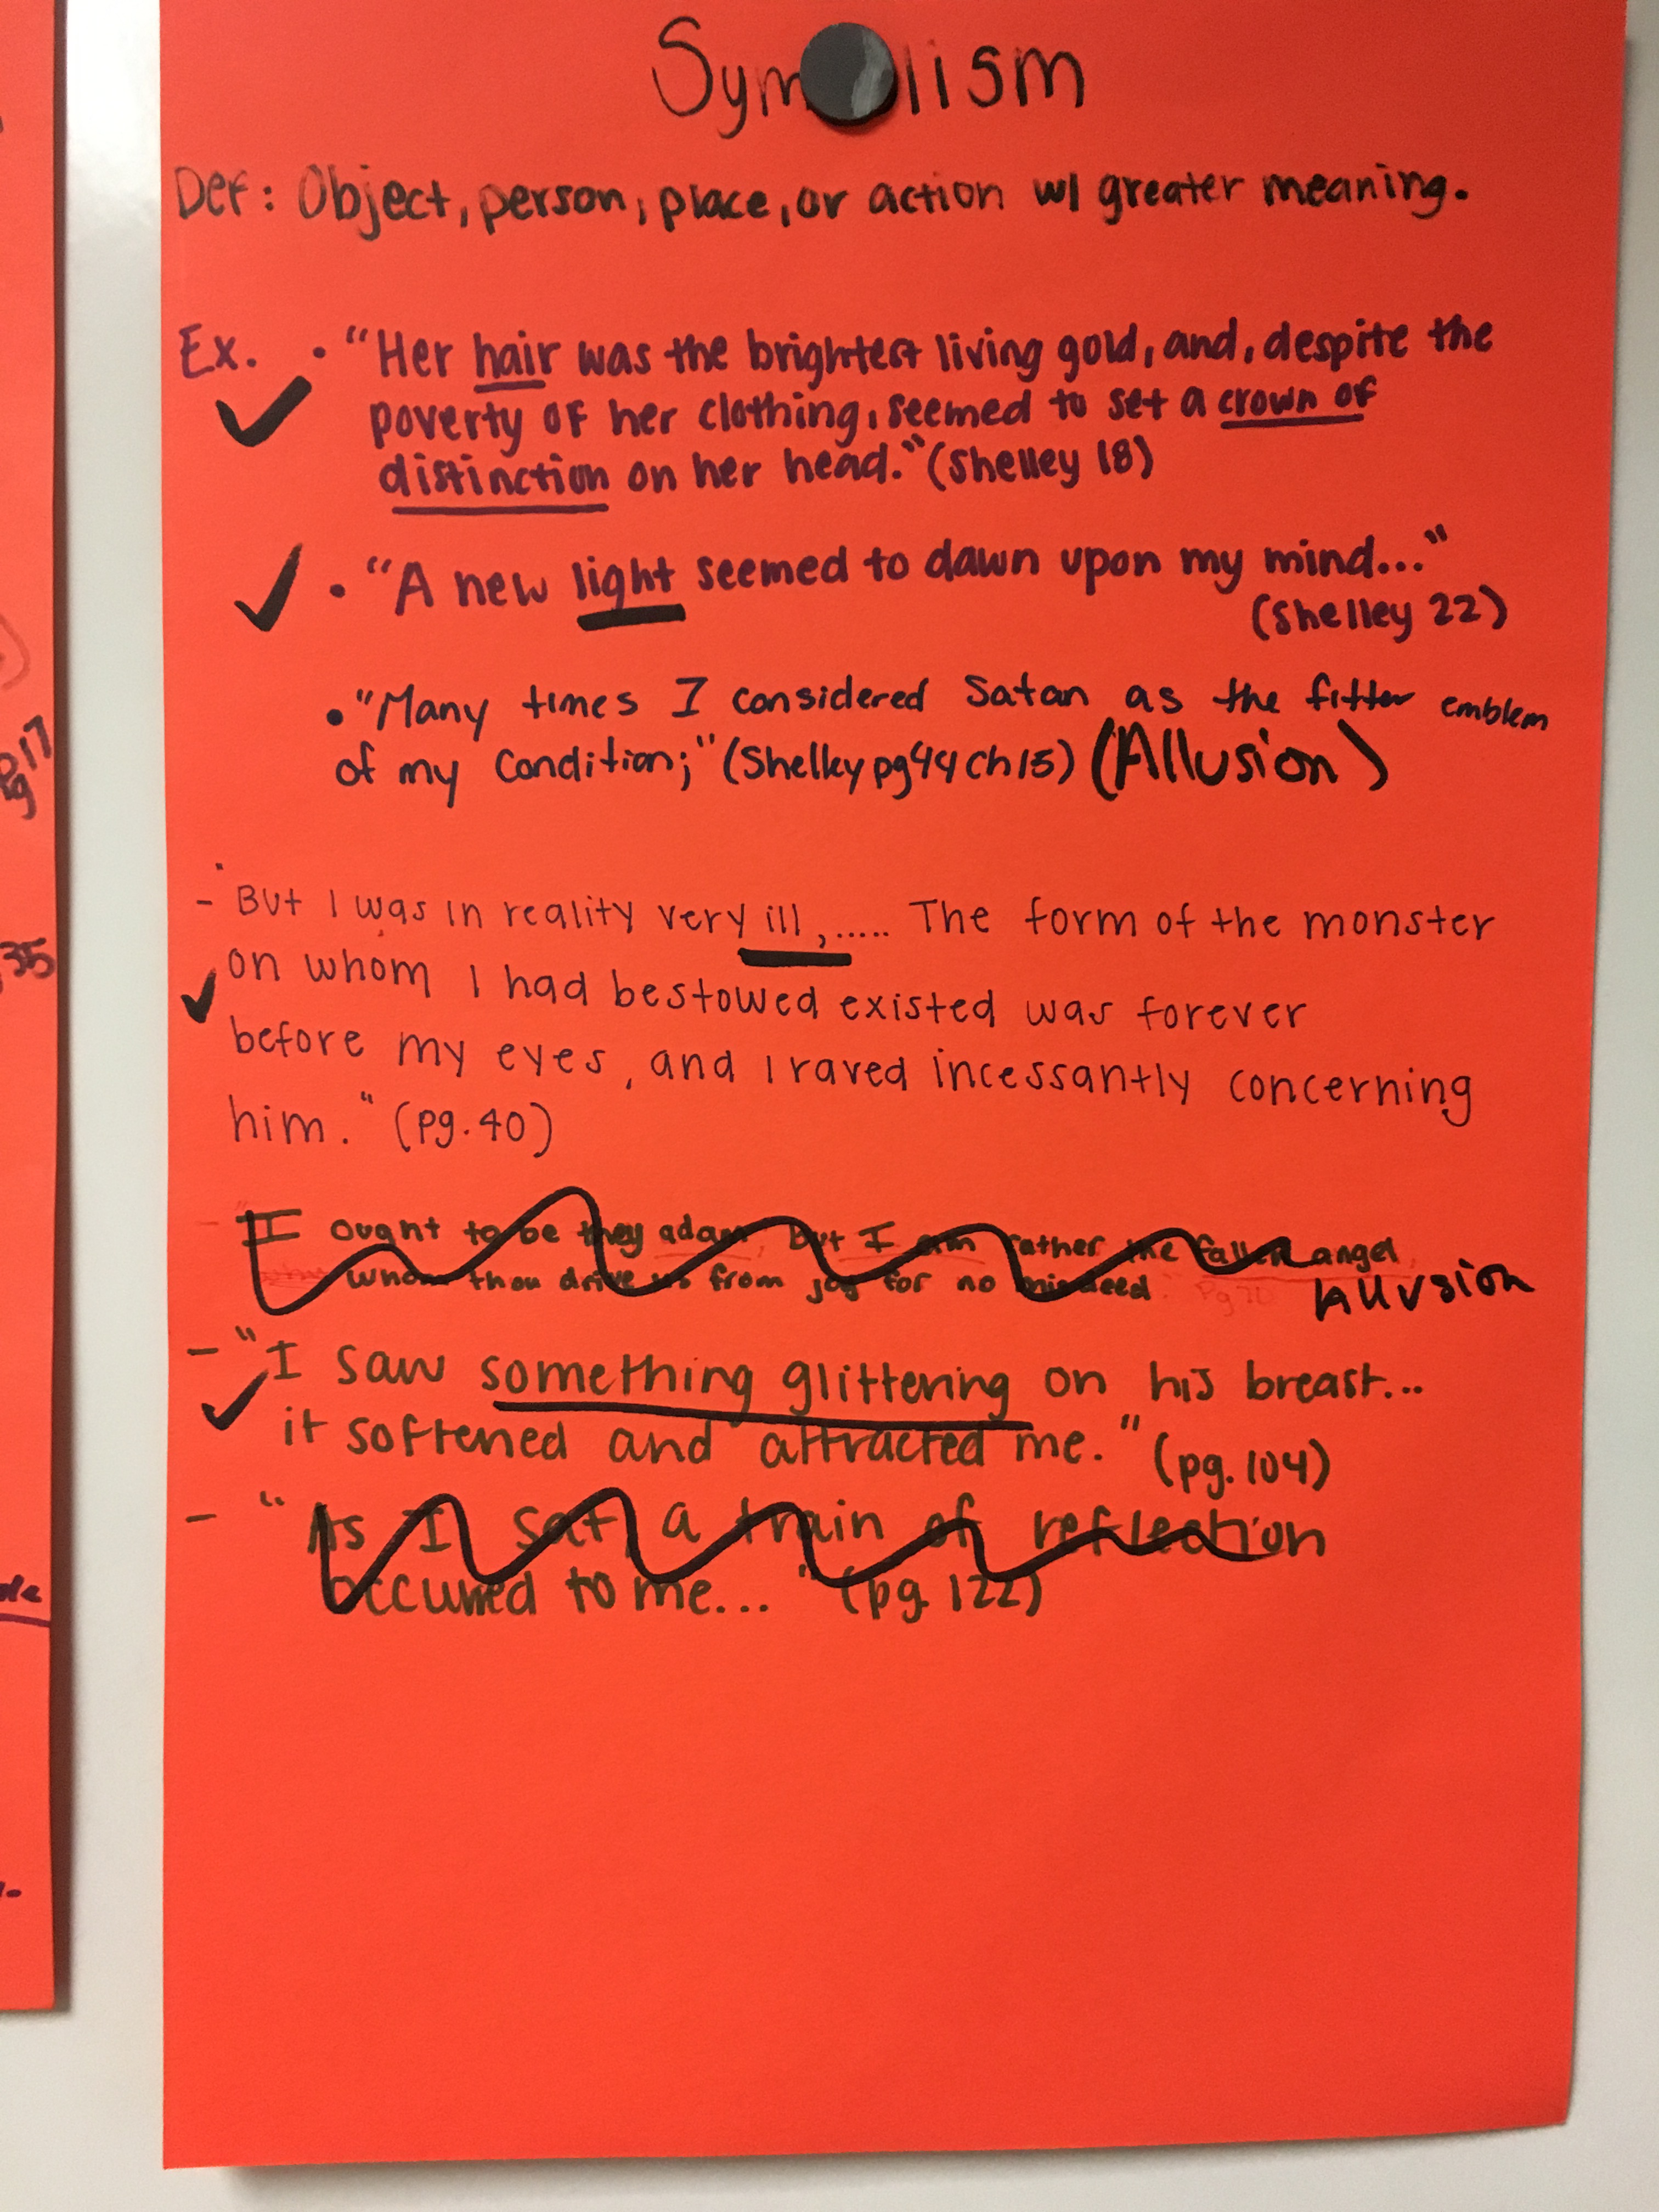 Symlism
Def: Object, person, place, or action w/ greater meaning.
Ex. • "Her hair was the brightest living gold, and, despite the
poverty of her clothing, seemed to set a crown of
distinction on her head." (Shelley 18)
• "A new light seemed to dawn upon my mind..."
(Shelley 22)
• "Many times I considered Satan as the fitter emblem
of my condition;" (Shelley pg 44 ch 15) (Allusion)
- "But I was in reality very ill,..... The form of the monster
on whom I had bestowed existed was forever
before my eyes, and I raved incessantly concerning
him." (pg. 40)
- "I ought to be they adam, but I am rather the fallen angel,
whom thou drive us from joy for no misdeed." pg 70 Allusion
- "I saw something glittering on his breast...
it softened and attracted me." (pg. 104)
- "As I sat, a train of reflection
occurred to me..." (pg. 122)
pg 17
35